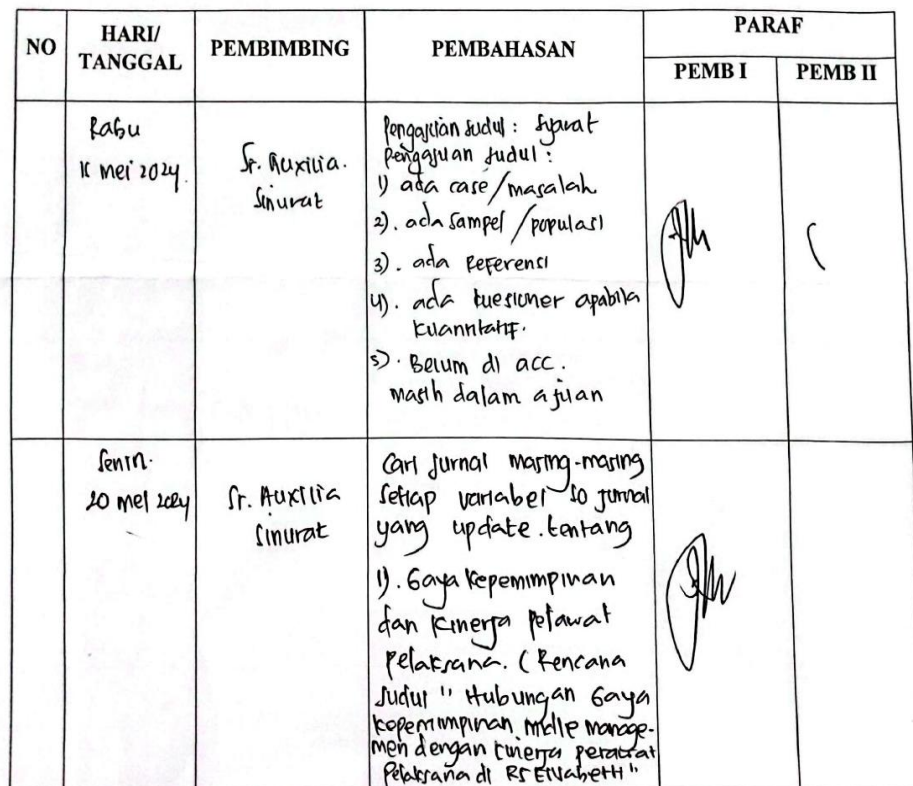 NO
HARI/
TANGGAL
PEMBIMBING
PEMBAHASAN
PARAF
PEMB I
PEMB II
Rabu
mei 2024.
Sr. Auxilia.
Sinurat
Pengajuan Judul : Syarat
pengajuan judul :
1) ada case/masalah
2). ada Sampel / populasi
3). ada Referensi
4). ada kuesioner apabila
kuantitatif.
5). Belum di acc.
masih dalam ajuan
Senin.
20 mei 2024
Sr. Auxilia
Sinurat
Cari Jurnal masing-masing
setiap variabel jurnal
yang update. tentang
1). Gaya Kepemimpinan
dan Kinerja perawat
pelaksana. (Rencana
Judul " Hubungan Gaya
kepemimpinan manage-
men dengan kinerja perawat
Pelaksana di RS